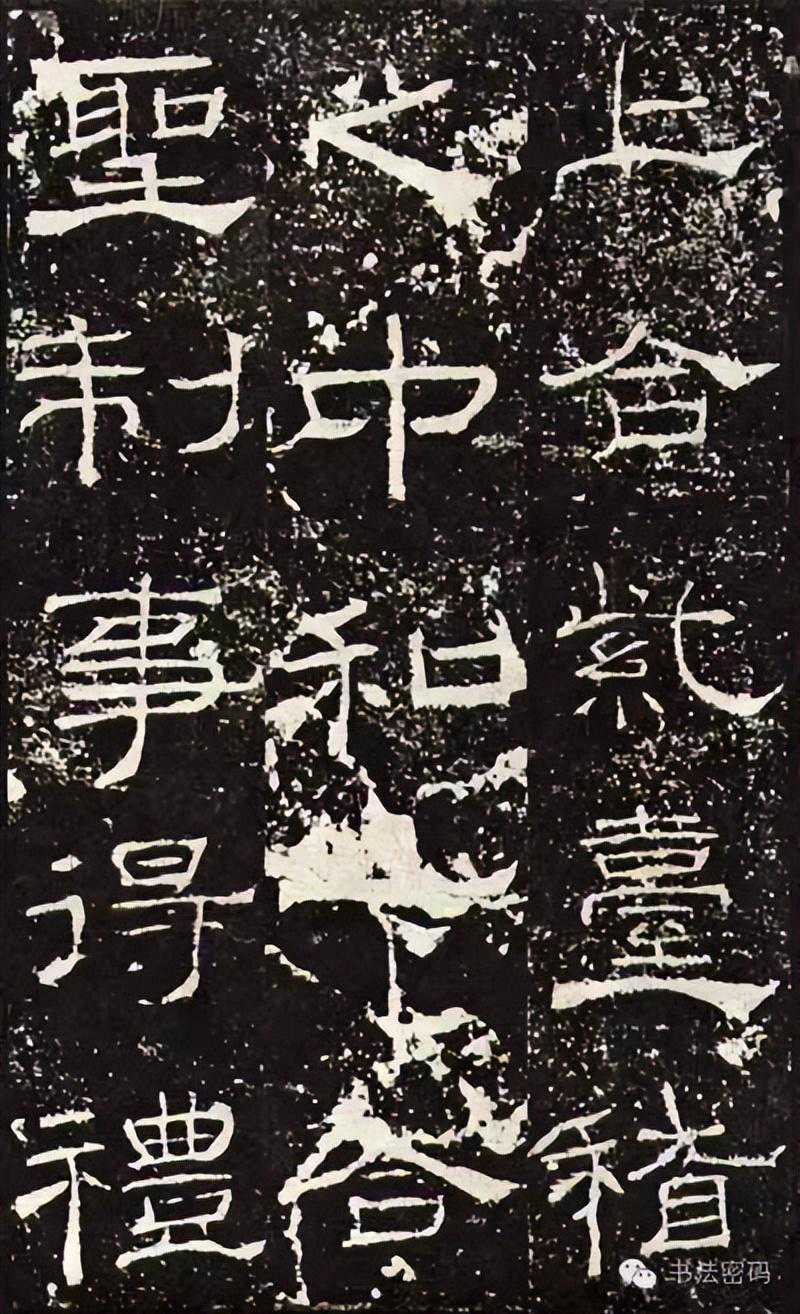 上合紫臺稽
之中和下合
聖制事得禮
书法密码